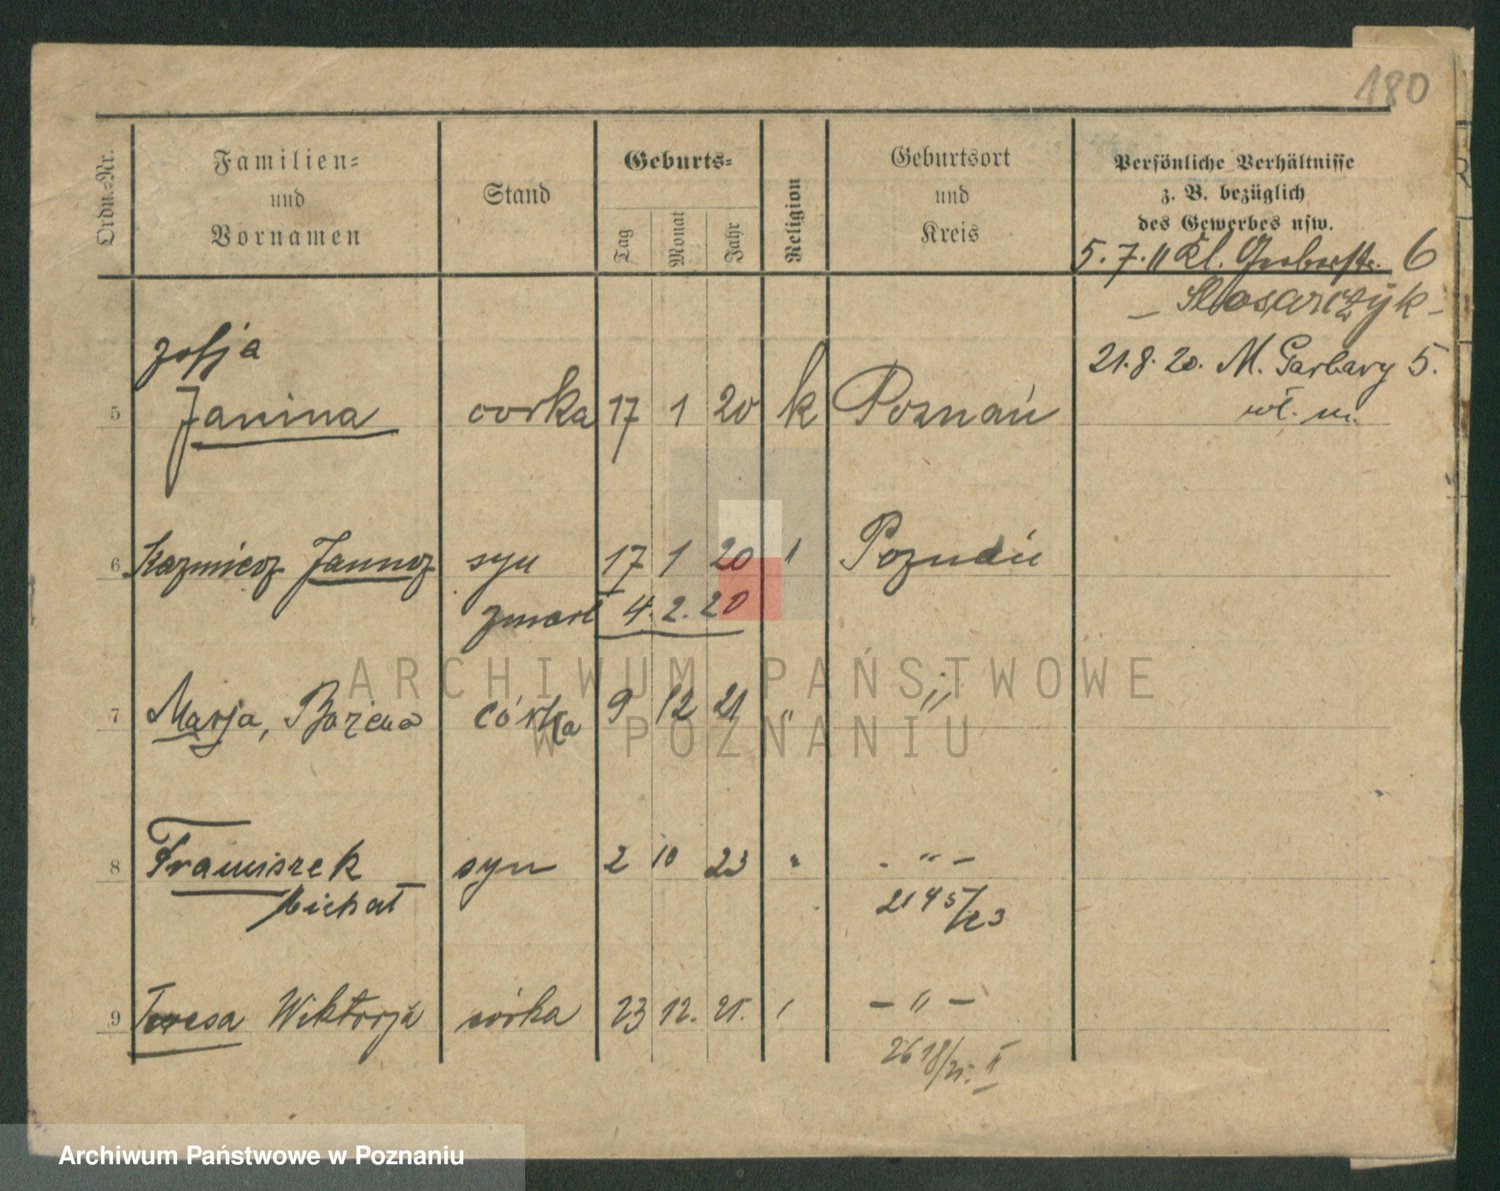 180
Ordn.-Nr.
Familien-
und
Vornamen
Stand
Geburts-
Tag
Monat
Jahr
Religion
Geburtsort
und
Kreis
Persönliche Verhältnisse
z. B. bezüglich
des Gewerbes usw.
5.7.11 Kl. Gerberstr. 6
21.8.20. M. Garbary 5.
wł. m.
Zofja
5 Janina córka 17 1 20 k Poznań
6 Kazmierz Janusz syn 17 1 20 " Poznań
zmarł 4.2.20
7 Marja, Bożena córka 9 12 21 " "
8 Franciszek syn 2 10 23 " - " -
Michał
2145/23
9 Teresa Wiktorja córka 23 12. 25. " - " -
2618/25. II
ARCHIWUM PAŃSTWOWE
W POZNANIU
Archiwum Państwowe w Poznaniu